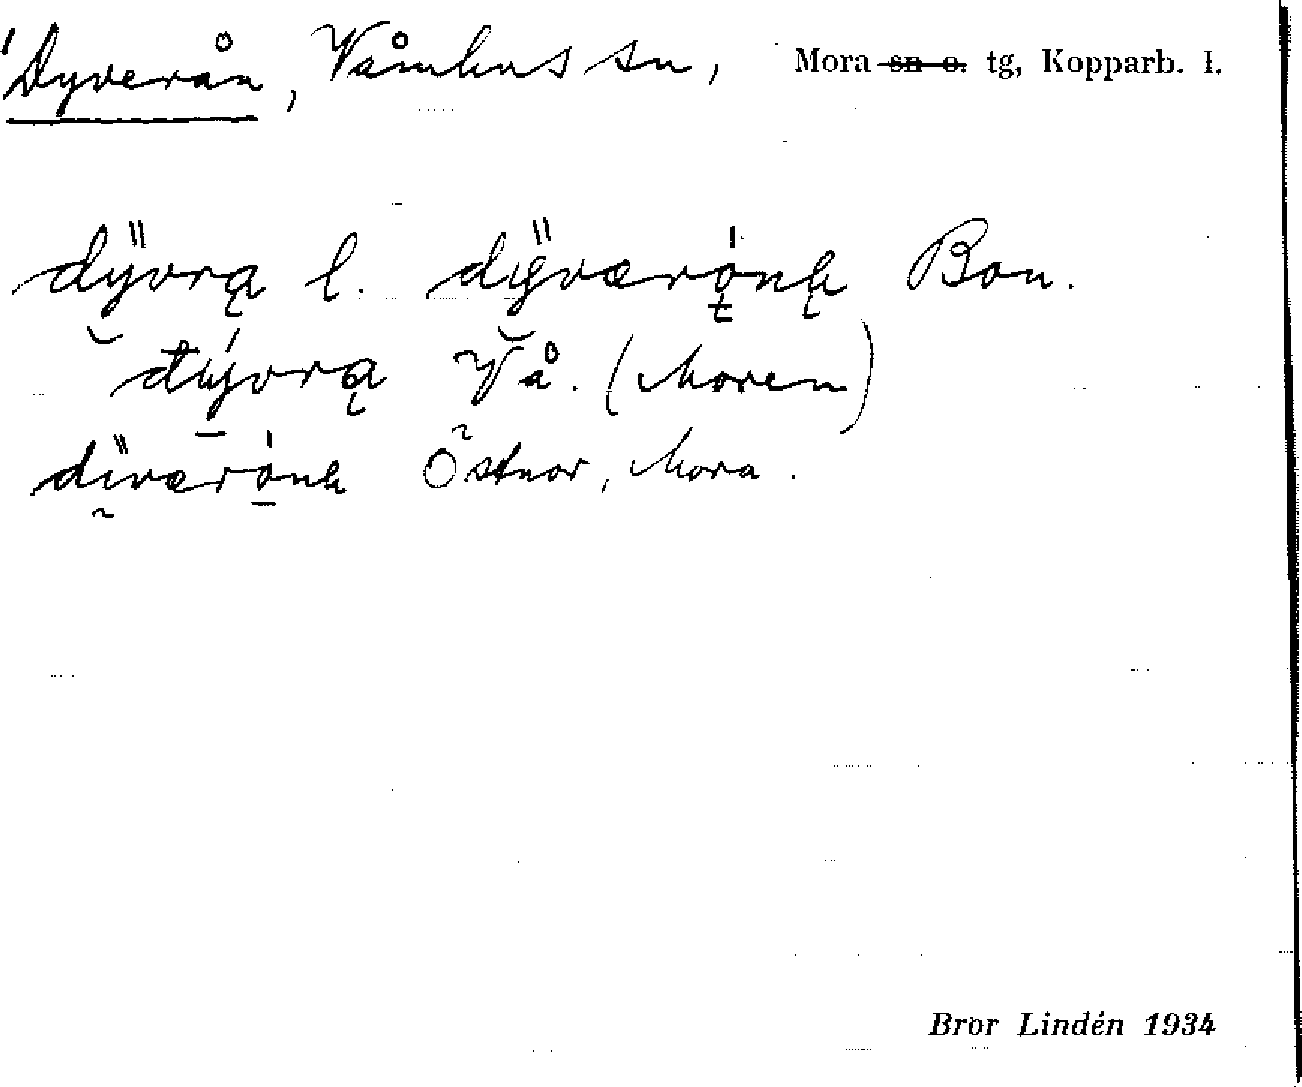 Dyverån, Våmhus sn, Mora sn o. tg, Kopparb. l.
dÿvrą l. dÿværǫ́ną Bon.
dývrą Vå. (Moren)
dïværóną Östnor, Mora.
Bror Lindén 1934